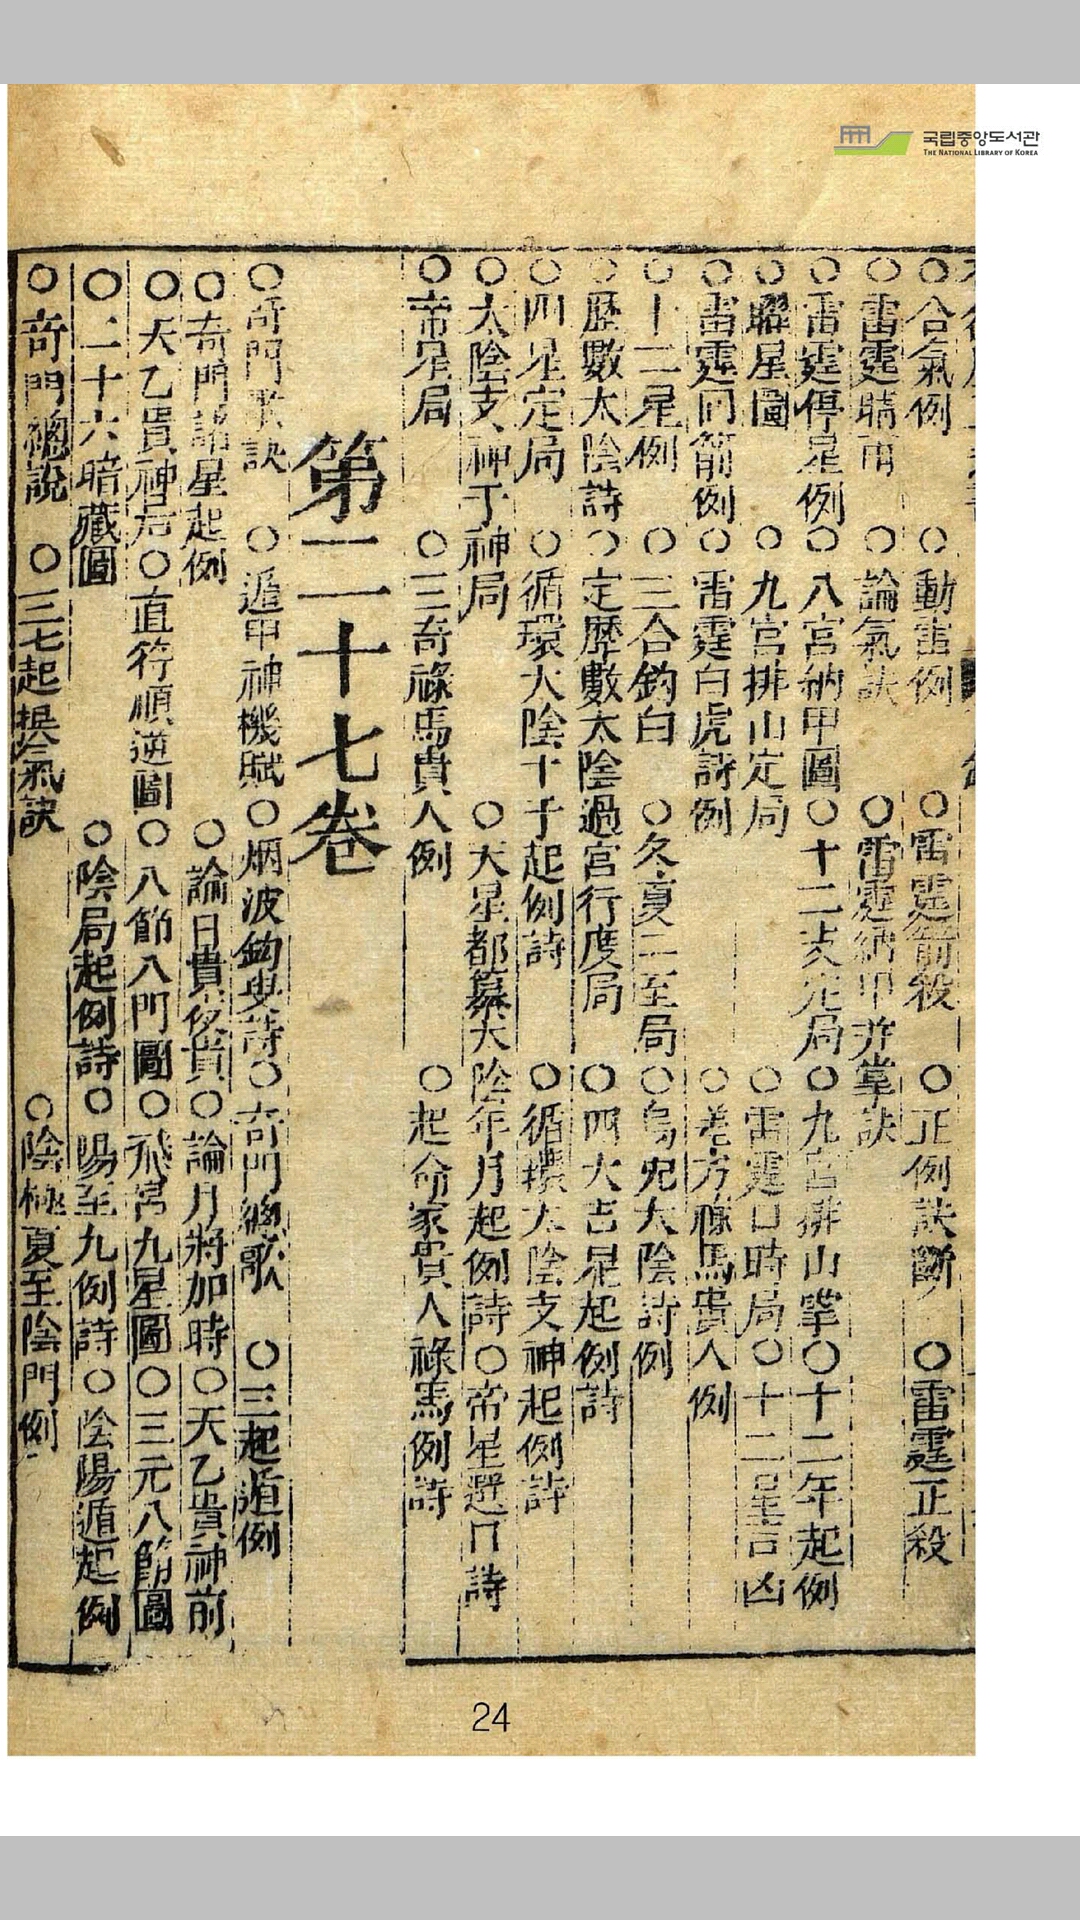 국립중앙도서관
THE NATIONAL LIBRARY OF KOREA
○合氣例 ○動雷例 ○雷霆箭殺 ○正例訣斷 ○雷霆正殺
○雷霆晴雨 ○論氣訣 ○雷霆納甲并掌訣
○雷霆停星例 ○八宮納甲圖 ○十二支定局 ○九宮排山掌 ○十二年起例
○聯星圖 ○九宮排山定局 ○雷霆日時局 ○十二星吉凶
○雷霆同箭例 ○雷霆白虎詩例 ○差方祿馬貴人例
○十二星例 ○三合鈎白 ○冬夏二至局 ○烏兔太陰詩例
○歷數太陰詩 ○定歷數太陰過宮行度局 ○四大吉星起例詩
○四星定局 ○循環太陰十干起例詩 ○循環太陰支神起例詩
○太陰支神干神局 ○天星都纂大陰年月起例詩 ○帝星選日詩
○帝星局 ○三奇祿馬貴人例 ○起命家貴人祿馬例詩
第二十七卷
○奇門歌訣 ○遁甲神機賦 ○烟波鈎叟詩 ○奇門總歌 ○三起遁例
○奇門諸星起例 ○論日貴夜貴 ○論月將加時 ○天乙貴神前
○天乙貴神后 ○直符順逆圖 ○八節八門圖 ○飛宮九星圖 ○三元八節圖
○二十六暗藏圖 ○陰局起例詩 ○陽至九例詩 ○陰陽遁起例
○奇門總說 ○三七起損氣訣 ○陰極夏至陰門例
24